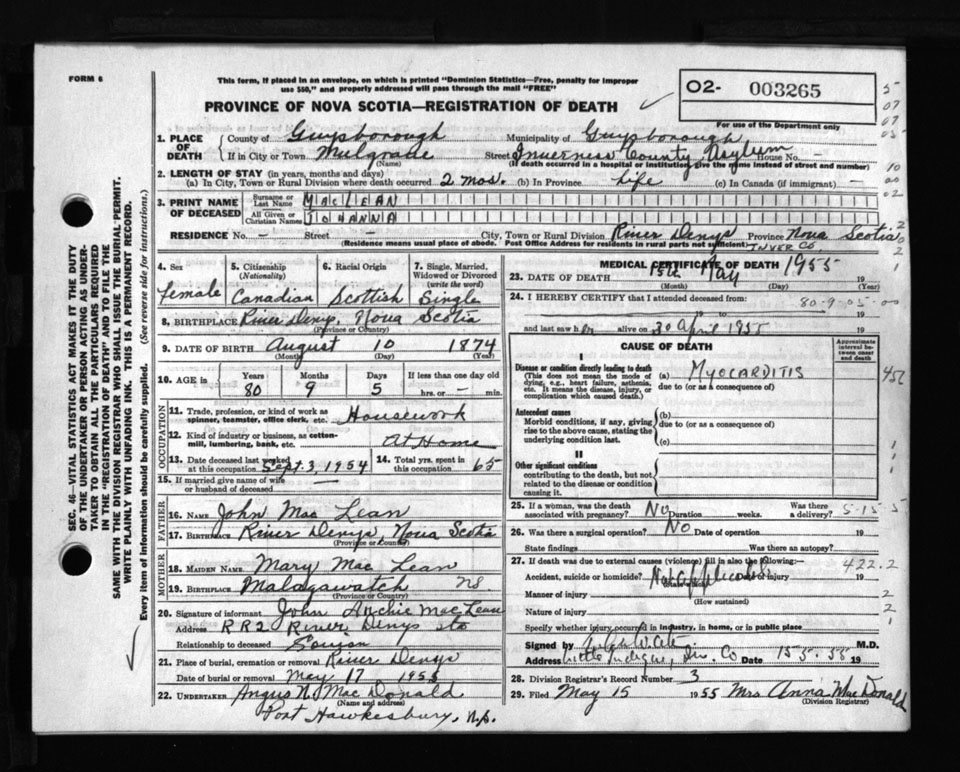 FORM 6
This form, if placed in an envelope, on which is printed "Dominion Statistics—Free, penalty for improper
use $50," and properly addressed will pass through the mail "FREE"
PROVINCE OF NOVA SCOTIA—REGISTRATION OF DEATH
O2- 003265
For use of the Department only
SEC. 46—VITAL STATISTICS ACT MAKES IT THE DUTY
OF THE UNDERTAKER OR PERSON ACTING AS UNDER-
TAKER TO OBTAIN ALL THE PARTICULARS REQUIRED
IN THE "REGISTRATION OF DEATH" AND TO FILE THE
SAME WITH THE DIVISION REGISTRAR WHO SHALL ISSUE THE BURIAL PERMIT.
WRITE PLAINLY WITH UNFADING INK. THIS IS A PERMANENT RECORD.
Every item of information should be carefully supplied. (See reverse side for instructions.)
1. PLACE OF DEATH County of Guysborough Municipality of Guysborough
If in City or Town Mulgrave Street Inverness County Asylum House No. -
(Name) (If death occurred in a hospital or institution, give the name instead of street and number)
2. LENGTH OF STAY (in years, months and days)
(a) In City, Town or Rural Division where death occurred 2 mos. (b) In Province Life (c) In Canada (if immigrant) —
3. PRINT NAME OF DECEASED Surname or Last Name MacLEAN
All Given or Christian Names JOHANNA
RESIDENCE No. - Street - City, Town or Rural Division River Denys Province Nova Scotia
(Residence means usual place of abode. Post Office Address for residents in rural parts not sufficient) INVER CO
4. Sex 5. Citizenship (Nationality) 6. Racial Origin 7. Single, Married, Widowed or Divorced (write the word)
female Canadian Scottish Single
8. BIRTHPLACE River Denys, Nova Scotia
(Province or Country)
9. DATE OF BIRTH August 10 1874
(Month) (Day) (Year)
10. AGE in Years Months Days If less than one day old
80 9 5 hrs. or — min.
OCCUPATION
11. Trade, profession, or kind of work as spinner, teamster, office clerk, etc. Housework
12. Kind of industry or business, as cotton-mill, lumbering, bank, etc. At Home
13. Date deceased last worked at this occupation Sept. 3, 1954 14. Total yrs. spent in this occupation 65
15. If married give name of wife or husband of deceased —
FATHER
16. Name John Mac Lean
17. Birthplace River Denys, Nova Scotia
(Province or Country)
MOTHER
18. Maiden Name Mary Mac Lean
19. Birthplace Malagawatch NS
(Province or Country)
20. Signature of informant John Archie MacLean
Address RR2 River Denys Sta
Relationship to deceased Cousin
21. Place of burial, cremation or removal River Denys
Date of burial or removal May 17 1955
22. UNDERTAKER Angus N. MacDonald
(Name and address)
Port Hawkesbury, N.S.
MEDICAL CERTIFICATE OF DEATH
23. DATE OF DEATH 15th May 1955 19
(Month) (Day)
24. I HEREBY CERTIFY that I attended deceased from:
80-9-05-00
19 to 19
and last saw her alive on 30 April 1955 19
CAUSE OF DEATH
Approximate interval between onset and death
I
Disease or condition directly leading to death (a) MYOCARDITIS
(This does not mean the mode of dying, e.g., heart failure, asthenia, etc. It means the disease, injury, or complication which caused death.)
due to (or as a consequence of)
Antecedent causes (b)
Morbid conditions, if any, giving rise to the above cause, stating the underlying condition last.
due to (or as a consequence of)
(c)
II
Other significant conditions
contributing to the death, but not related to the disease or condition causing it.
25. If a woman, was the death associated with pregnancy? No Duration weeks. Was there a delivery?
26. Was there a surgical operation? No Date of operation 19
State findings Was there an autopsy?
27. If death was due to external causes (violence) fill in also the following:—
422.2
Accident, suicide or homicide? Not applicable Date of injury 19
Manner of injury
(How sustained)
Nature of injury
Specify whether injury occurred in industry, in home, or in public place
Signed by M.D.
Address Little Judique, Inv. Co Date 15-5-55 19
28. Division Registrar's Record Number 3
29. Filed May 15 1955 Mrs Anna MacDonald
(Division Registrar)